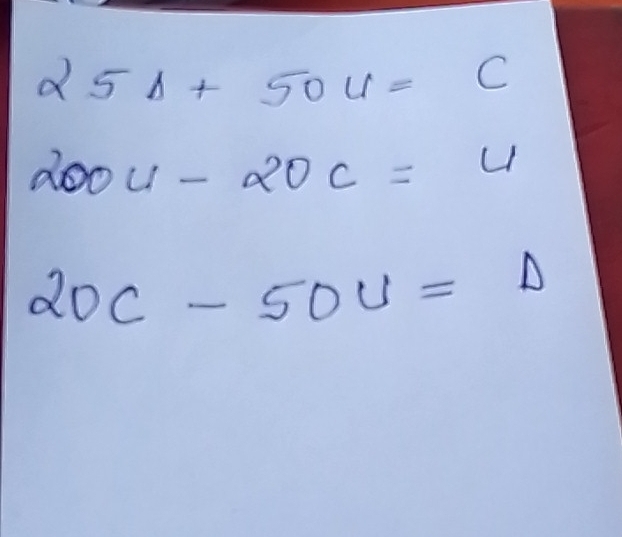 25Δ + 50U = C
200U - 20C = U
20C - 50U = Δ